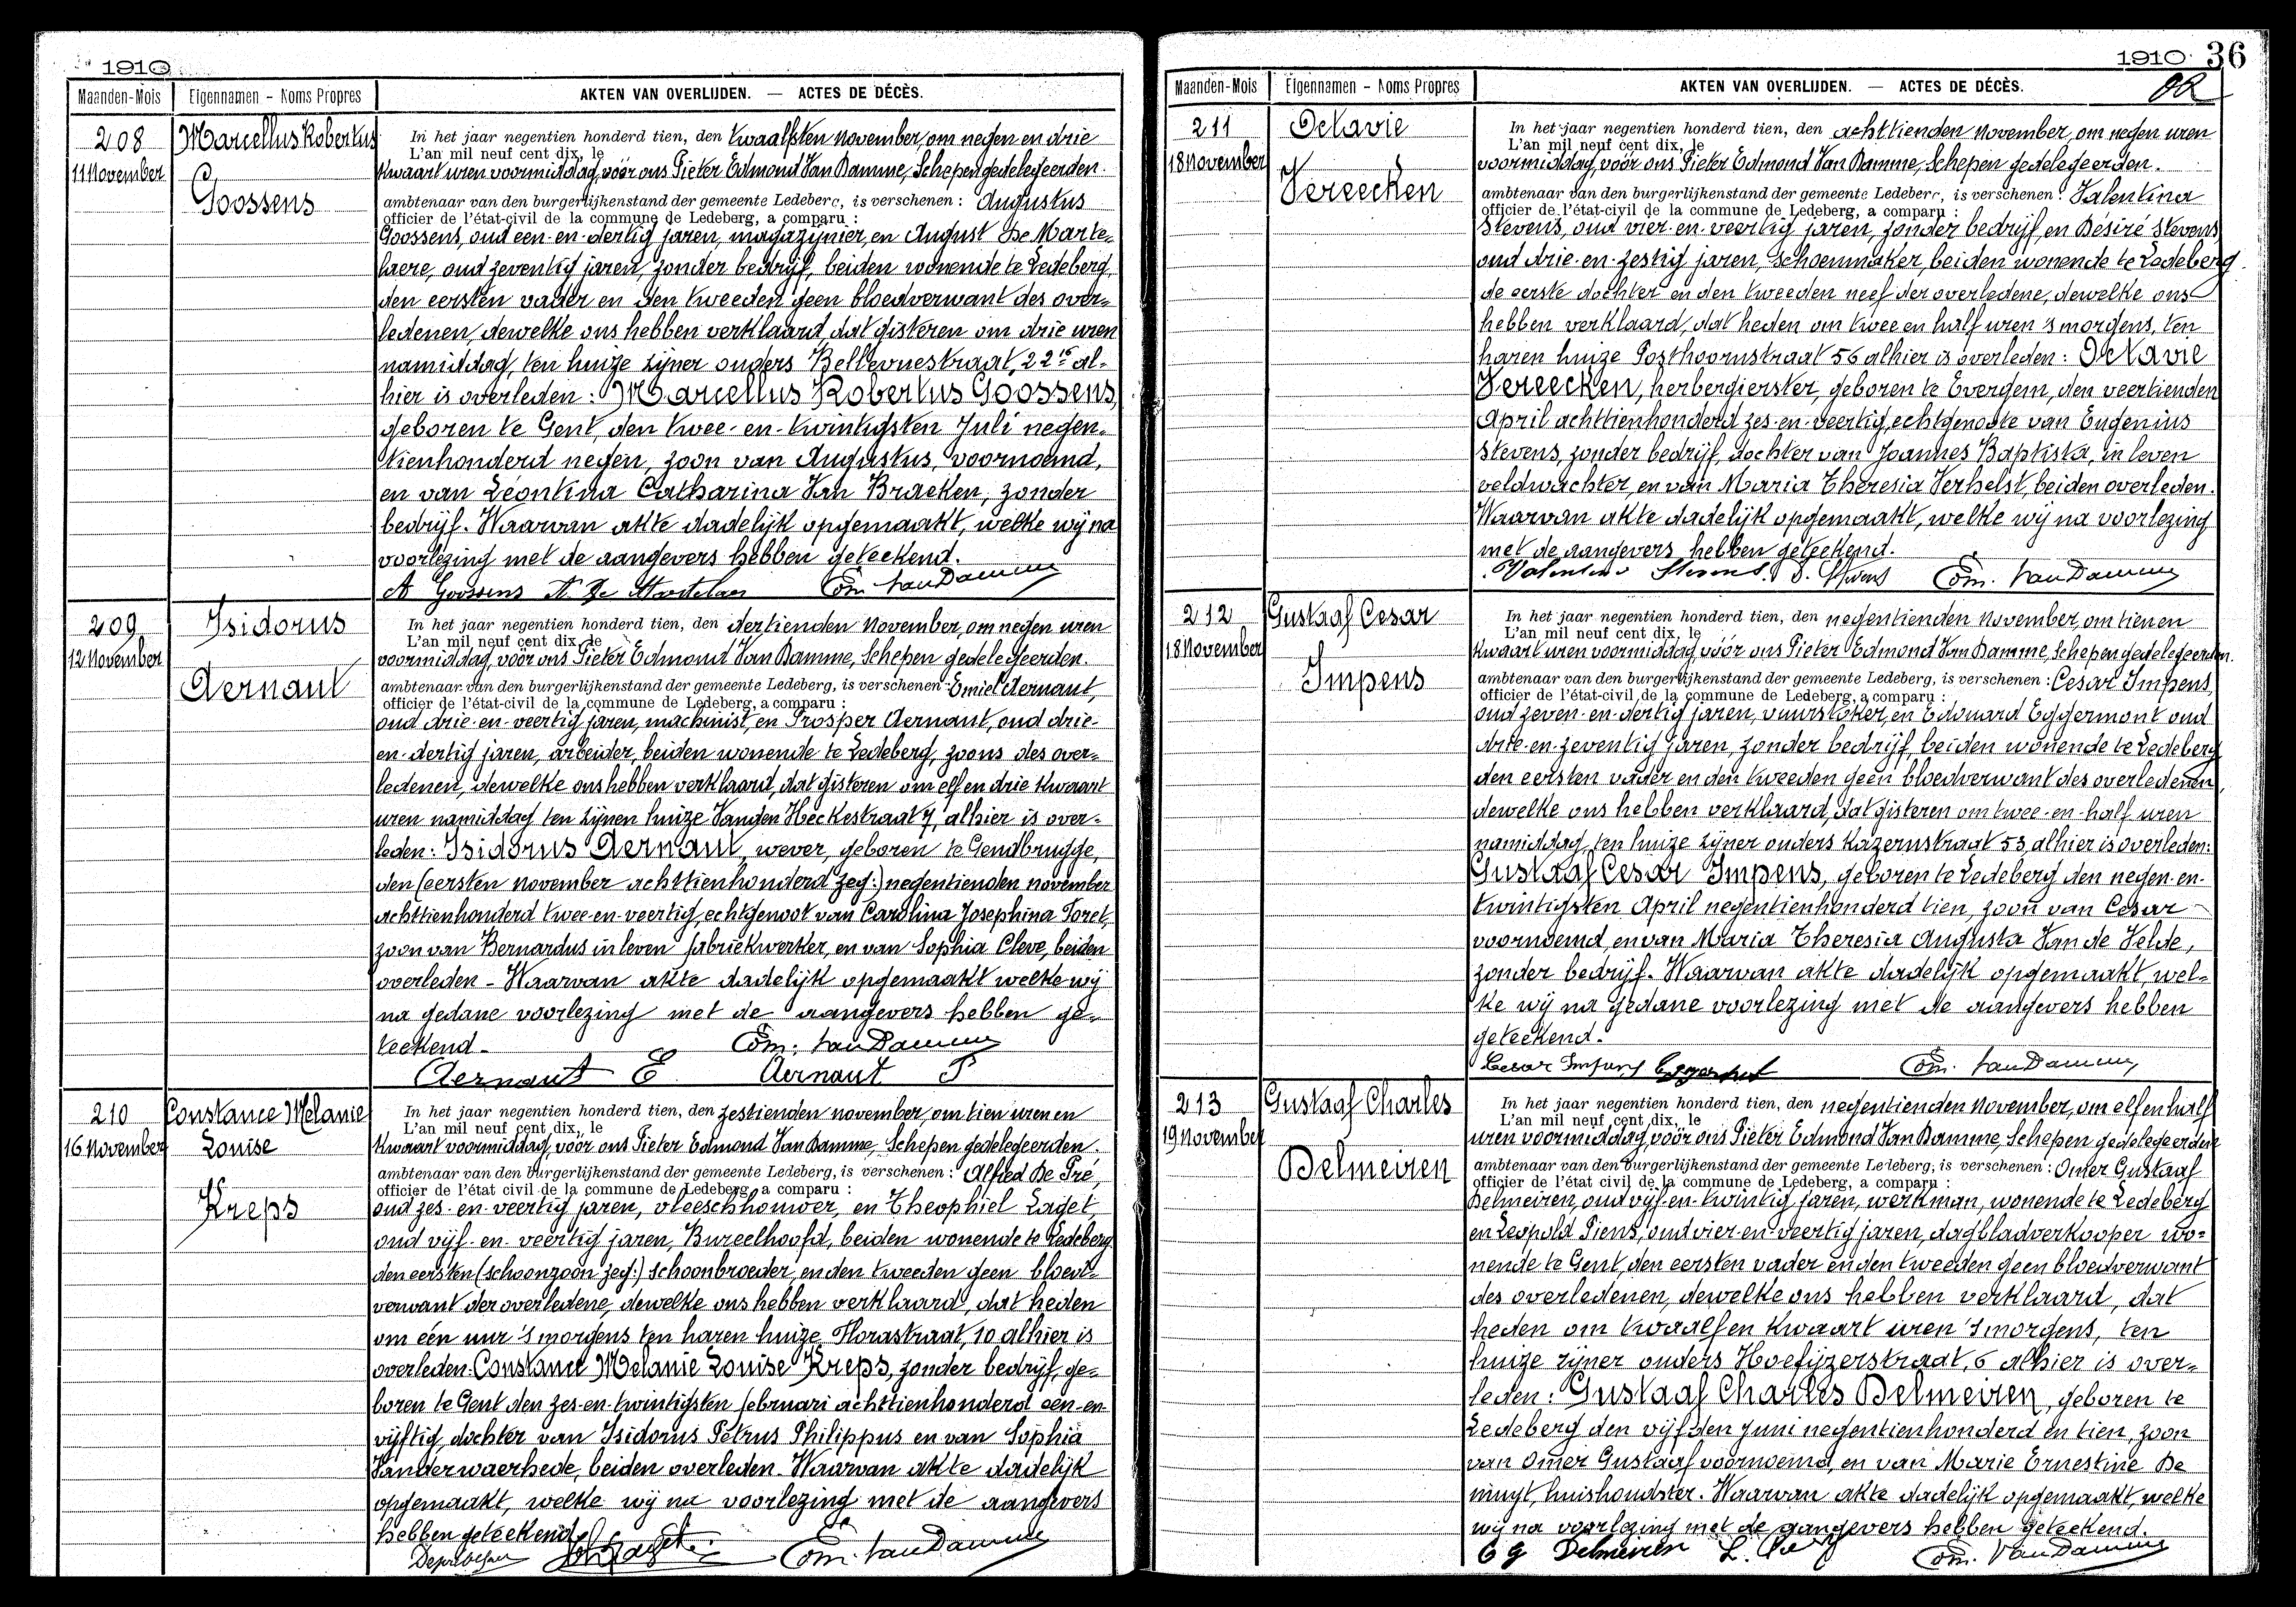 1910
Maanden-Mois Eigennamen - Noms Propres AKTEN VAN OVERLIJDEN. — ACTES DE DÉCÈS.
208 Marcellus Robertus
11 November
Goossens
In het jaar negentien honderd tien, den twaalfsten november, om negen en drie
L'an mil neuf cent dix, le
kwaart uren voormiddag, vóór ons Pieter Edmond Van Damme, Schepen gedelegeerden.
ambtenaar van den burgerlijkenstand der gemeente Ledeberg, is verschenen : Augustus
officier de l'état-civil de la commune de Ledeberg, a comparu :
Goossens, oud een-en-dertig jaren, magazijnier, en August De Marte-
laere, oud zeventig jaren, zonder bedrijf, beiden wonende te Ledeberg,
den eersten vader en den tweeden geen bloedverwant des over-
ledenen, dewelke ons hebben verklaard, dat gisteren om drie uren
namiddag, ten huize zijner ouders Bellevuestraat, 22 al-
hier is overleden : Marcellus Robertus Goossens,
geboren te Gent, den twee-en-twintigsten Juli negen-
tienhonderd negen, zoon van Augustus, voornoemd,
en van Léontina Catharina Van Bracken, zonder
bedrijf. Waarvan akte dadelijk opgemaakt, welke wij na
voorlezing met de aangevers hebben geteekend.
A Goossens A. De Martelaer Edm. Van Damme
209 Isidorus
12 November
Aernaut
In het jaar negentien honderd tien, den dertienden november, om negen uren
L'an mil neuf cent dix, le
voormiddag, vóór ons Pieter Edmond Van Damme, Schepen gedelegeerden.
ambtenaar van den burgerlijkenstand der gemeente Ledeberg, is verschenen : Emiel Aernaut,
officier de l'état-civil de la commune de Ledeberg, a comparu :
oud drie-en-veertig jaren, machinist, en Prosper Aernaut, oud drie-
en-dertig jaren, arbeider, beiden wonende te Ledeberg, zoons des over-
ledenen, dewelke ons hebben verklaard, dat gisteren om elf en drie kwaart
uren namiddag ten zijnen huize Vanden Heckestraat 7, alhier is over-
leden : Isidorus Aernaut, wever, geboren te Gendbrugge,
den (eersten november achttienhonderd zeg:) negentienden november
achttienhonderd twee-en-veertig, echtgenoot van Carolina Josephina Foret,
zoon van Bernardus in leven fabriekwerker, en van Sophia Cleve, beiden
overleden - Waarvan akte dadelijk opgemaakt welke wij
na gedane voorlezing met de aangevers hebben ge-
teekend. Edm. Van Damme
Aernaut E Aernaut P
210 Constance Melanie
16 November Louise
Kreps
In het jaar negentien honderd tien, den zestienden november, om tien uren en
L'an mil neuf cent dix, le
kwaart voormiddag, vóór ons Pieter Edmond Van Damme, Schepen gedelegeerden.
ambtenaar van den burgerlijkenstand der gemeente Ledeberg, is verschenen : Alfred De Pré,
officier de l'état civil de la commune de Ledeberg, a comparu :
oud zes-en-veertig jaren, vleeschhouwer, en Theophiel Laget,
oud vijf-en-veertig jaren, Bureelhoofd, beiden wonende te Ledeberg
den eersten (schoonzoon zeg:) schoonbroeder, en den tweeden geen bloed-
verwant der overledene, dewelke ons hebben verklaard, dat heden
om één uur 's morgens ten haren huize Florastraat, 10 alhier is
overleden: Constance Melanie Louise Kreps, zonder bedrijf, ge-
boren te Gent den zes-en-twintigsten februari achttienhonderd een-en-
vijftig, dochter van Isidorus Petrus Philippus en van Sophia
Vanderwaerhede, beiden overleden. Waarvan akte dadelijk
opgemaakt, welke wij na voorlezing met de aangevers
hebben geteekend.
Edm. Van Damme
1910 36
Maanden-Mois Eigennamen - Noms Propres AKTEN VAN OVERLIJDEN. — ACTES DE DÉCÈS.
211 Octavie
18 November
Vereecken
In het jaar negentien honderd tien, den achttienden november, om negen uren
L'an mil neuf cent dix, le
voormiddag, vóór ons Pieter Edmond Van Damme, Schepen gedelegeerden.
ambtenaar van den burgerlijkenstand der gemeente Ledeberg, is verschenen : Valentina
officier de l'état-civil de la commune de Ledeberg, a comparu :
Stevens, oud vier-en-veertig jaren, zonder bedrijf, en Désiré Stevens,
oud drie-en-zestig jaren, schoenmaker, beiden wonende te Ledeberg
de eerste dochter en den tweeden neef der overledene, dewelke ons
hebben verklaard, dat heden om twee en half uren 's morgens, ten
haren huize Posthoornstraat 56 alhier is overleden : Octavie
Vereecken, herbergierster, geboren te Evergem, den veertienden
April achttienhonderd zes-en-veertig, echtgenoote van Eugenius
Stevens, zonder bedrijf, dochter van Joannes Baptista, in leven
veldwachter, en van Maria Theresia Verhelst, beiden overleden.
Waarvan akte dadelijk opgemaakt, welke wij na voorlezing
met de aangevers hebben geteekend.
Valentina Stevens D. Stevens Edm. Van Damme
212 Gustaaf Cesar
18 November
Impens
In het jaar negentien honderd tien, den negentienden november, om tien en
L'an mil neuf cent dix, le
kwaart uren voormiddag vóór ons Pieter Edmond Van Damme, Schepen gedelegeerden.
ambtenaar van den burgerlijkenstand der gemeente Ledeberg, is verschenen : Cesar Impens,
officier de l'état-civil de la commune de Ledeberg, a comparu :
oud zeven-en-dertig jaren, vuurstoker, en Edouard Eggermont oud
drie-en-zeventig jaren, zonder bedrijf, beiden wonende te Ledeberg
den eersten vader en den tweeden geen bloedverwant des overledenen,
dewelke ons hebben verklaard, dat gisteren om twee-en-half uren
namiddag, ten huize zijner ouders Kazernstraat 53, alhier is overleden:
Gustaaf Cesar Impens, geboren te Ledeberg den negen-en-
twintigsten April negentienhonderd tien, zoon van Cesar
voornoemd, en van Maria Theresia Augusta Van de Velde,
zonder bedrijf. Waarvan akte dadelijk opgemaakt, wel-
ke wij na gedane voorlezing met de aangevers hebben
geteekend.
Cesar Impens Eggermont Edm. Van Damme
213 Gustaaf Charles
19 November
Delmeiren
In het jaar negentien honderd tien, den negentienden november, om elf en half
L'an mil neuf cent dix, le
uren voormiddag, vóór ons Pieter Edmond Van Damme, Schepen gedelegeerden
ambtenaar van den burgerlijkenstand der gemeente Ledeberg, is verschenen : Omer Gustaaf
officier de l'état civil de la commune de Ledeberg, a comparu :
Delmeiren, oud vijf-en-twintig jaren, werkman, wonende te Ledeberg
en Leopold Piens, oud vier-en-veertig jaren, dagbladverkooper wo-
nende te Gent, den eersten vader en den tweeden geen bloedverwant
des overledenen, dewelke ons hebben verklaard, dat
heden om twaalf en kwaart uren 's morgens, ten
huize zijner ouders Hoefijzerstraat, 6 alhier is over-
leden : Gustaaf Charles Delmeiren, geboren te
Ledeberg den vijfden Juni negentienhonderd en tien, zoon
van Omer Gustaaf voornoemd, en van Marie Ernestine De
muyt, huishoudster. Waarvan akte dadelijk opgemaakt, welke
wij na voorlezing met de aangevers hebben geteekend.
O G Delmeiren Edm. Van Damme